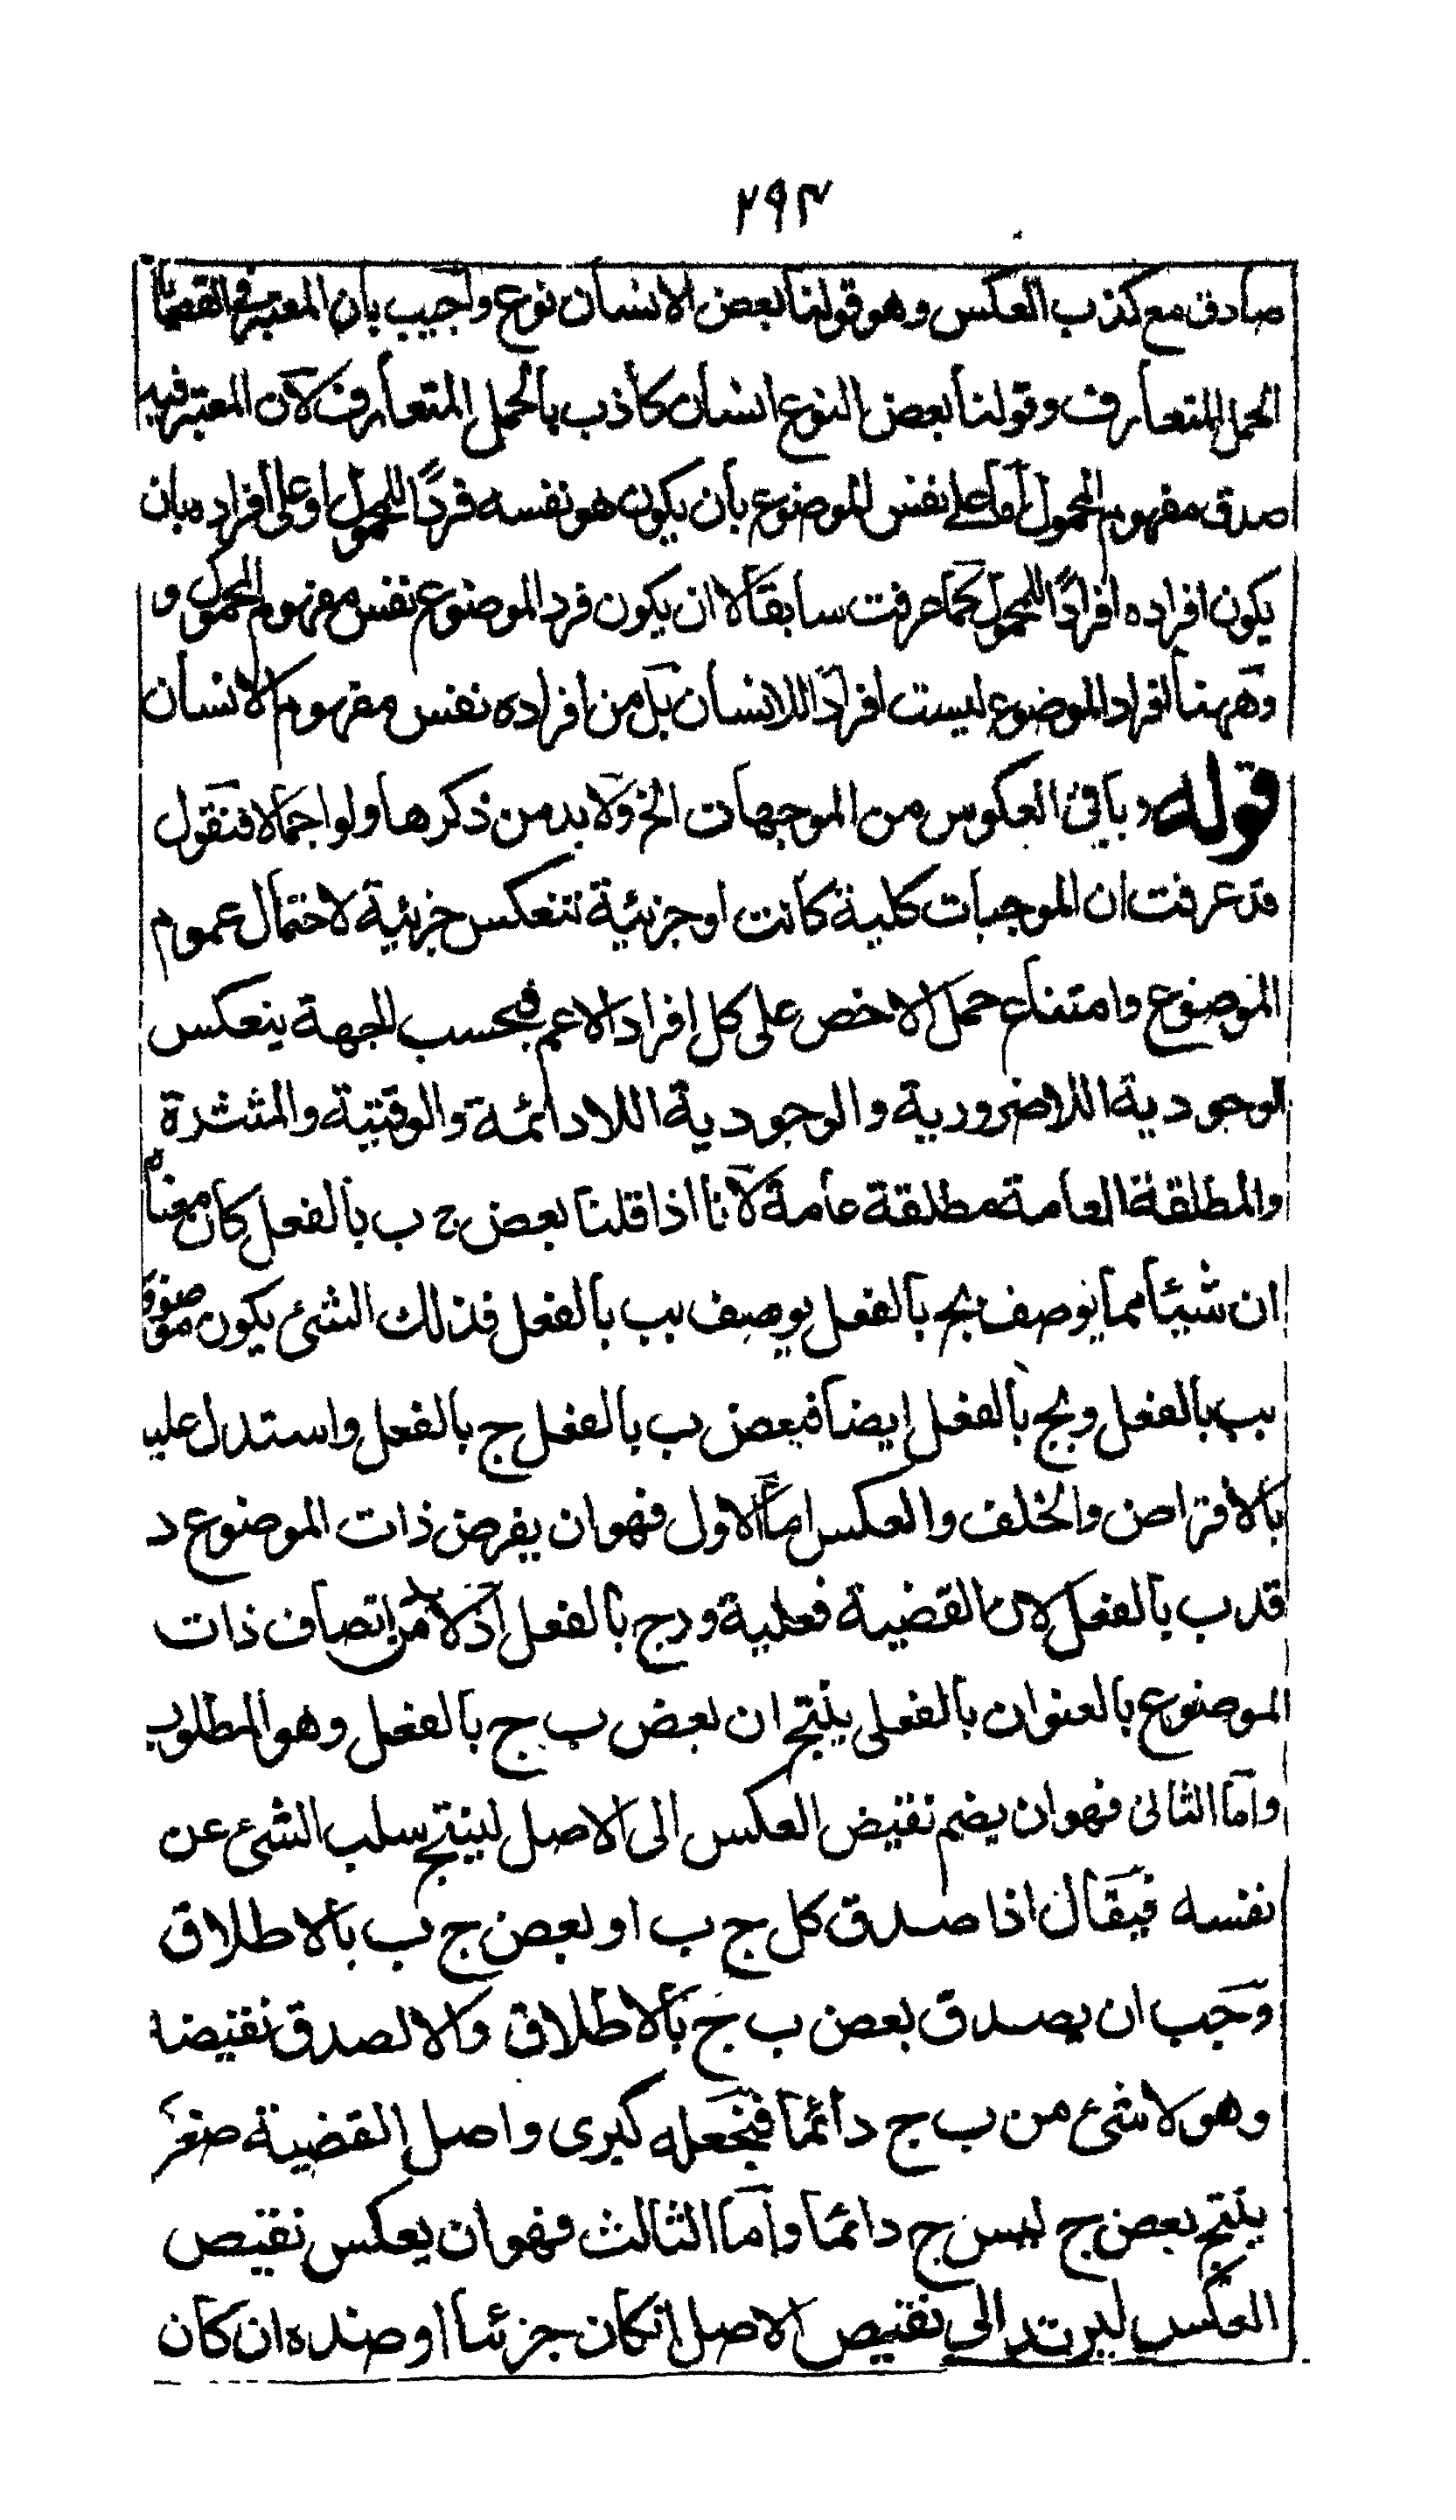 ٢٩٣
صادق مع كذب العكس وهو قولنا بعض الانسان نوع واجيب بان المعتبر في القضايا
الحمل المتعارف وقولنا بعض النوع انسان كاذب بالحمل المتعارف لان المعتبر فيه
صدق مفهوم المحمول اما على نفس الموضوع بان يكون هو نفسه فردًا للمحمول او على افراده بان
يكون افراده افرادًا للمحمول كما عرفت سابقا لا ان يكون فرد الموضوع نفس مفهوم المحمول و
وههنا افراد الموضوع ليست افرادًا للانسان بل من افراده نفس مفهوم الانسان
قوله وباقي العكوس من الموجهات الخ ولا بد من ذكرها ولو اجمالا فنقول
قد عرفت ان الموجبات كلية كانت او جزئية تنعكس جزئية لاحتمال عموم
الموضوع وامتناع حمل الاخص على كل افراد الاعم فبحسب الجهة ينعكس
الوجودية اللاضرورية والوجودية اللادائمة والوقتية والمنتشرة
والمطلقة العامة مطلقة عامة لانا اذا قلنا بعض ج ب بالفعل كان معناه
ان شيئا مما يوصف بج بالفعل يوصف بب بالفعل فذلك الشئ يكون موصوفا
بب بالفعل وبج بالفعل ايضا فبعض ب بالفعل ج بالفعل واستدل عليه
بالافتراض والخلف والعكس اما الاول فهو ان يفرض ذات الموضوع د
فد ب بالفعل لان القضية فعلية ود ج بالفعل اذ لا بد من اتصاف ذات
الموضوع بالعنوان بالفعل ينتج ان بعض ب ج بالفعل وهو المطلوب
واما الثاني فهو ان يضم نقيض العكس الى الاصل لينتج سلب الشئ عن
نفسه فيقال اذا صدق كل ج ب او بعض ج ب بالاطلاق
وجب ان يصدق بعض ب ج بالاطلاق والا لصدق نقيضه
وهو لا شئ من ب ج دائما فنجعله كبرى واصل القضية صغرى
ينتج بعض ج ليس ج دائما واما الثالث فهو ان يعكس نقيض
العكس ليرتد الى نقيض الاصل انكان جزئيا او ضده ان كان